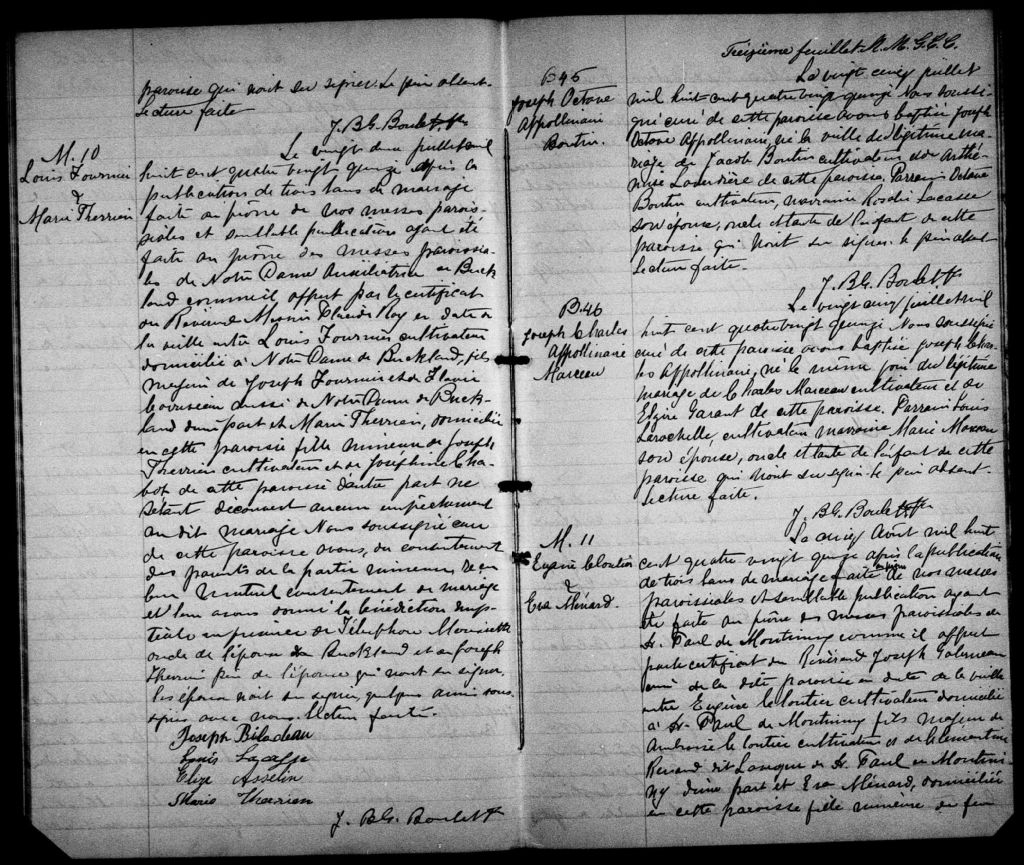 paroisse qui n'ont su signer. Le père absent.
Lecture faite
J. B. G. Boulet Ptre
M. 10
Louis Fournier
&
Marie Therrien
Le vingt deux juillet mil
huit cent quatre vingt quinze après la
publication de trois bans de mariage
faite au prône de nos messes parois-
siales et semblable publication ayant été
faite au prône des messes paroissia-
les de Notre Dame Auxiliatrice de Buck
land comme il appert par le certificat
du Révérend Messire Claude Roy en date de
la veille entre Louis Fournier cultivateur
domicilié à Notre Dame de Buckland, fils
majeur de Joseph Fournier et de Flavie
aussi de Notre Dame de Buck-
land d'une part et Marie Therrien, domiciliée
en cette paroisse fille mineure de Joseph
Therrien cultivateur et de Joséphine Cha-
bot de cette paroisse d'autre part ne
s'étant découvert aucun empêchement
au dit mariage Nous soussigné curé
de cette paroisse avons, du consentement
des parents de la partie mineure, reçu
leur mutuel consentement de mariage
et leur avons donné la bénédiction nup-
tiale en présence de Télesphore Morissette
oncle de l'époux de Buckland et de Joseph
Therrien père de l'épouse qui n'ont su signer,
les époux n'ont su signer, quelques amis sous-
signés avec nous. Lecture faite.
Joseph Bilodeau
Louis Lacasse
Elize Asselin
Marie Therrien
J. B. G. Boulet Ptre
Treizième feuillet. M. M. G. C. C.
B 45
Joseph Octave
Appollinaire
Boutin.
Le vingt cinq juillet
mil huit cent quatre vingt quinze Nous soussi-
gné curé de cette paroisse avons baptisé Joseph
Octave Appollinaire, né la veille du légitime ma-
riage de Jacob Boutin cultivateur et de Arthé-
mise Laverdière de cette paroisse. Parrain Octave
Boutin cultivateur, marraine Rosalie Lacasse
son épouse, oncle et tante de l'enfant de cette
paroisse qui n'ont su signer. le père absent
Lecture faite.
J. B. G. Boulet Ptre
B. 46
Joseph Charles
Appollinaire
Marceau
Le vingt cinq juillet mil
huit cent quatre vingt quinze Nous soussigné
curé de cette paroisse avons baptisé Joseph Char-
les Appollinaire, né le même jour du légitime
mariage de Charles Marceau cultivateur et de
Elzire Garant de cette paroisse. Parrain Louis
Larochelle, cultivateur marraine Marie
son épouse, oncle et tante de l'enfant de cette
paroisse qui n'ont su signer le père absent.
Lecture faite.
J. B. G. Boulet Ptre
M. 11
Eugène Cloutier
&
Eva Ménard.
Le cinq Août mil huit
cent quatre vingt quinze après la publication
de trois bans de mariage faite au prône de nos messes
paroissiales et semblable publication ayant
été faite au prône des messes paroissiales de
St. Paul de Montminy comme il appert
par le certificat du Révérend Joseph
curé de la dite paroisse en date de la veille
entre Eugène Cloutier cultivateur domicilié
à St. Paul de Montminy fils majeur de
Ambroise Cloutier cultivateur et de Clémentine
Renaud dit de St. Paul de Montmi-
ny d'une part et Eva Ménard, domiciliée
en cette paroisse fille mineure de feu